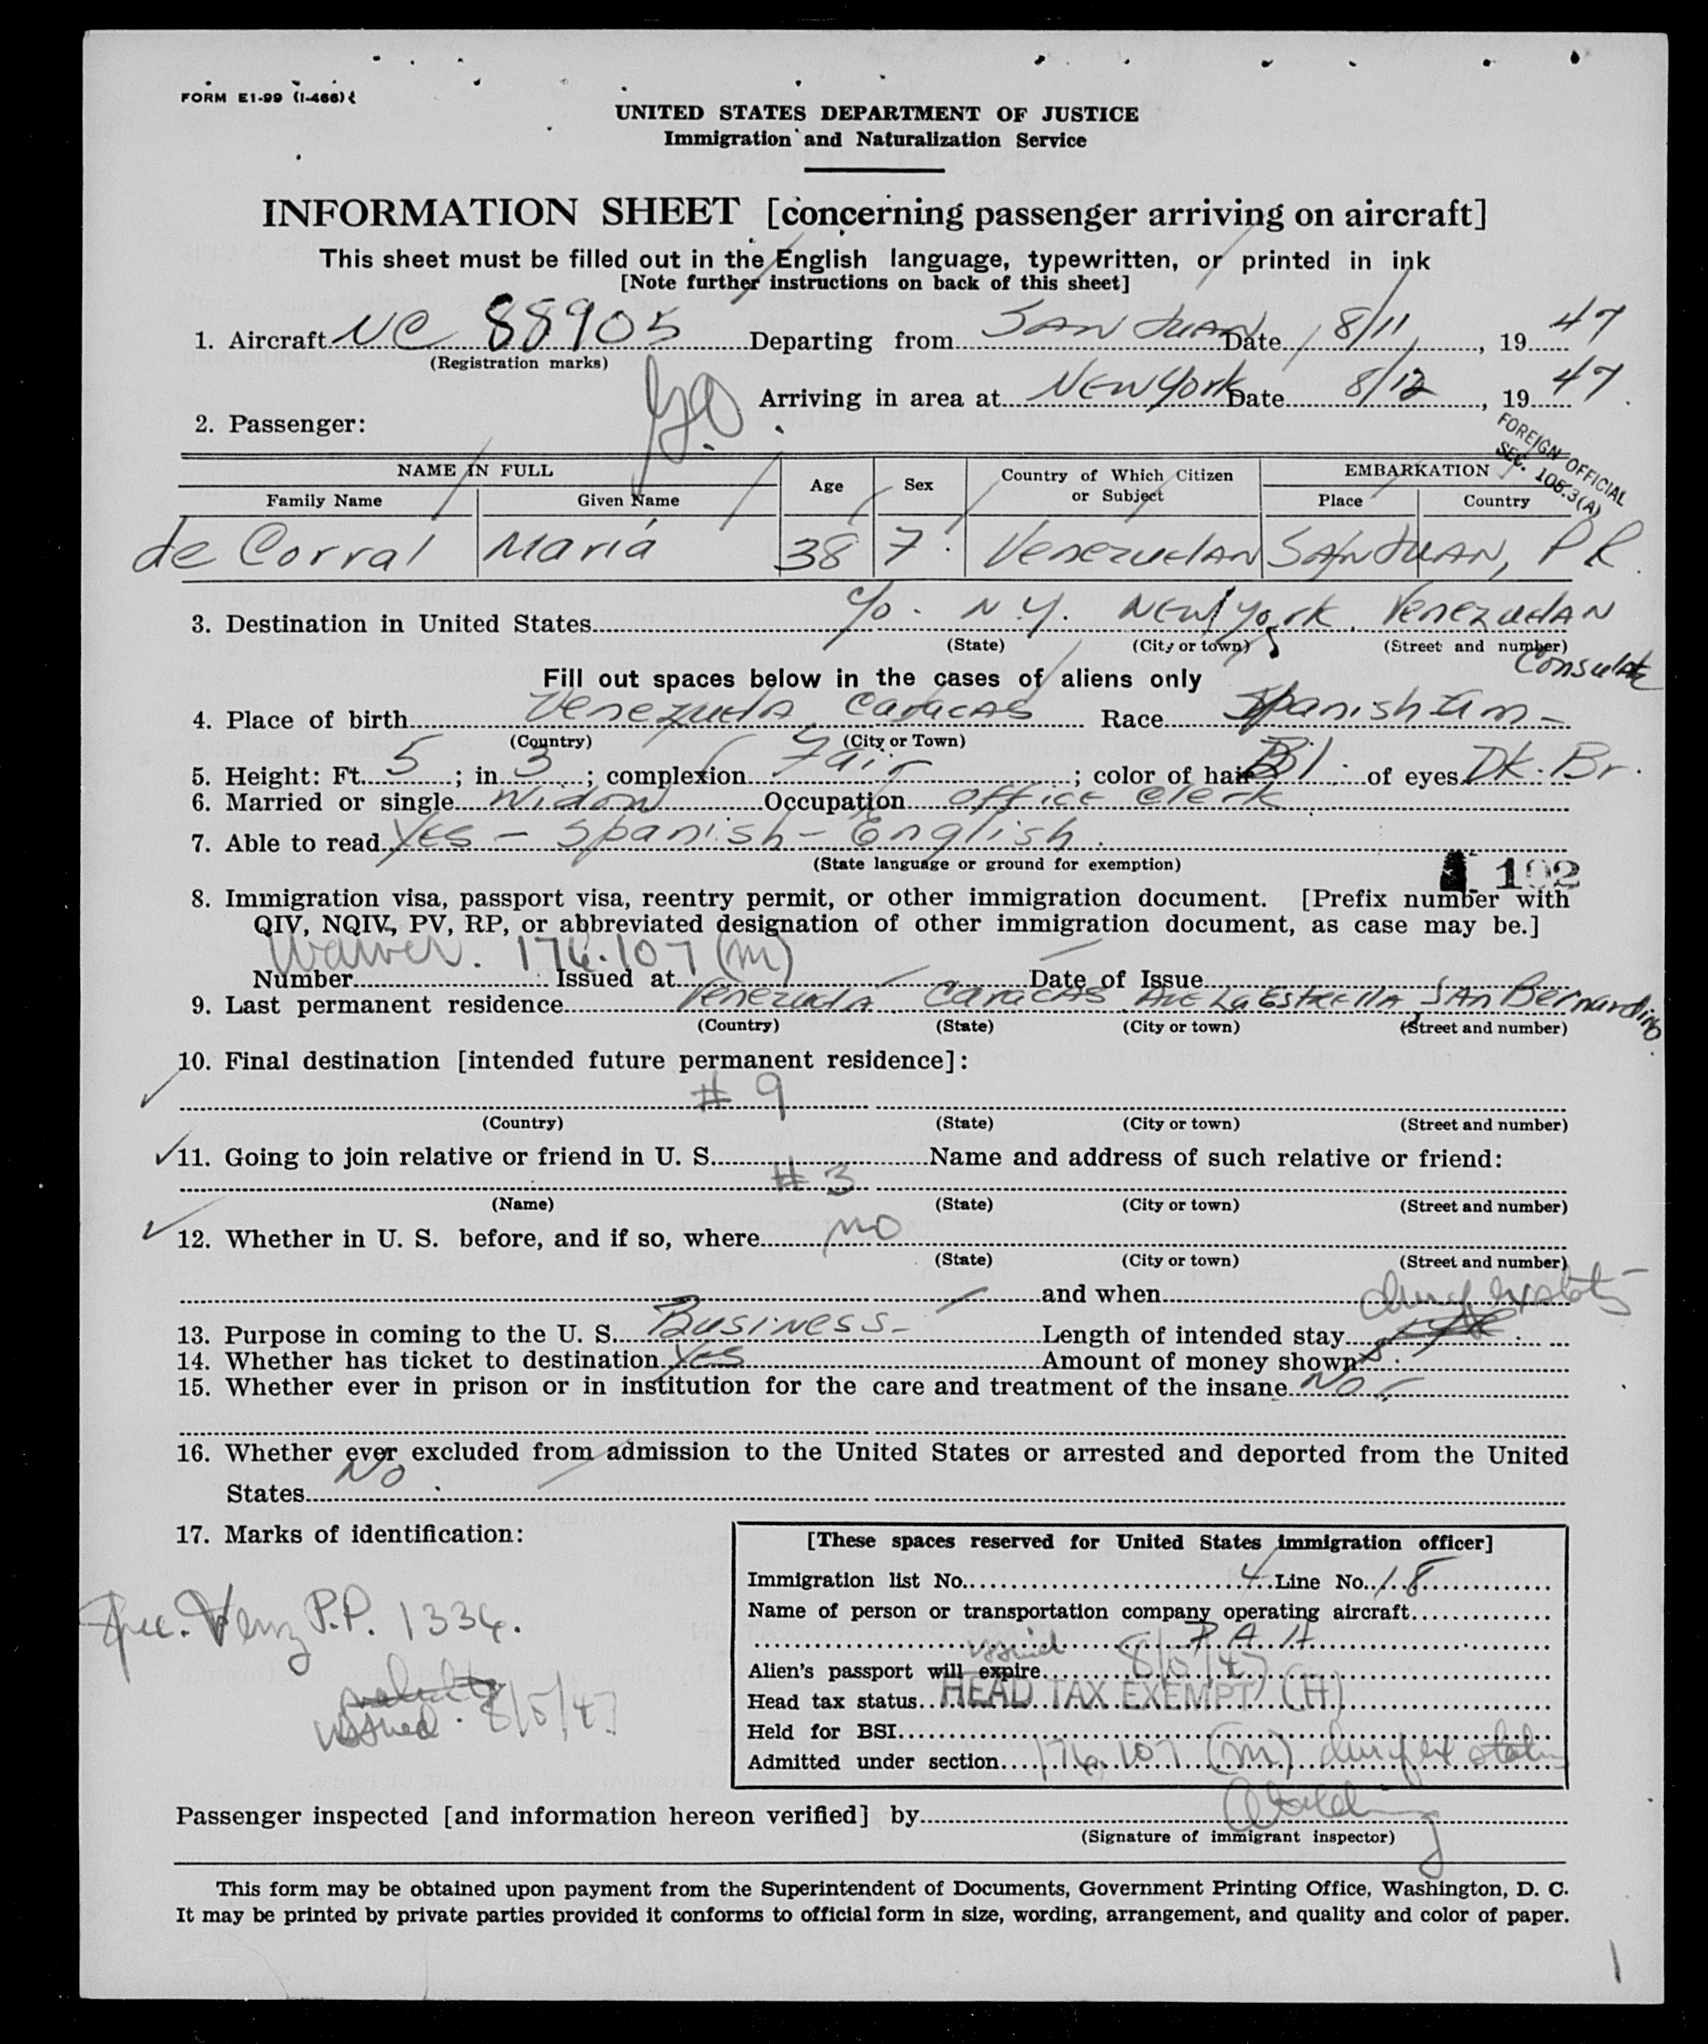 FORM E1-99 (I-466)
UNITED STATES DEPARTMENT OF JUSTICE
Immigration and Naturalization Service
INFORMATION SHEET [concerning passenger arriving on aircraft]
This sheet must be filled out in the English language, typewritten, or printed in ink
[Note further instructions on back of this sheet]
1. Aircraft NC 88905 Departing from SAN JUAN Date 8/11, 19 47
(Registration marks)
Arriving in area at NEW York Date 8/12, 19 47.
2. Passenger:
FOREIGN OFFICIAL
SEC. 105.3(A)
NAME IN FULL Age Sex Country of Which Citizen or Subject EMBARKATION
Family Name Given Name Place Country
de Corral Maria 38 F. Venezuelan SAN JUAN, P.R.
3. Destination in United States c/o. N.Y. New York. Venezuelan
(State) (City or town) (Street and number)
Consulate
Fill out spaces below in the cases of aliens only
4. Place of birth Venezuela, Caracas Race Spanish Am-
(Country) (City or Town)
5. Height: Ft. 5; in. 3; complexion Fair; color of hair Bl. of eyes Dk. Br.
6. Married or single Widow Occupation Office Clerk
7. Able to read Yes - Spanish - English.
(State language or ground for exemption)
102
8. Immigration visa, passport visa, reentry permit, or other immigration document. [Prefix number with
QIV, NQIV, PV, RP, or abbreviated designation of other immigration document, as case may be.]
Waiver. 176.107 (m)
Number Issued at Date of Issue
9. Last permanent residence Venezuela. Caracas Ave La Estrella San Bernardino.
(Country) (State) (City or town) (Street and number)
10. Final destination [intended future permanent residence]:
# 9
(Country) (State) (City or town) (Street and number)
11. Going to join relative or friend in U. S. Name and address of such relative or friend:
# 3
(Name) (State) (City or town) (Street and number)
12. Whether in U. S. before, and if so, where no
(State) (City or town) (Street and number)
and when
13. Purpose in coming to the U. S. Business- Length of intended stay
14. Whether has ticket to destination Yes Amount of money shown
15. Whether ever in prison or in institution for the care and treatment of the insane No-
16. Whether ever excluded from admission to the United States or arrested and deported from the United
States No
17. Marks of identification:
[These spaces reserved for United States immigration officer]
Immigration list No. 4 Line No. 18
Name of person or transportation company operating aircraft
P A A
issued 8/5/47
Alien's passport will expire
Head tax status HEAD TAX EXEMPT (H)
Held for BSI
Admitted under section 176.107 (m)
P.P. 1334.
issued. 8/5/47
Passenger inspected [and information hereon verified] by
(Signature of immigrant inspector)
This form may be obtained upon payment from the Superintendent of Documents, Government Printing Office, Washington, D. C.
It may be printed by private parties provided it conforms to official form in size, wording, arrangement, and quality and color of paper.